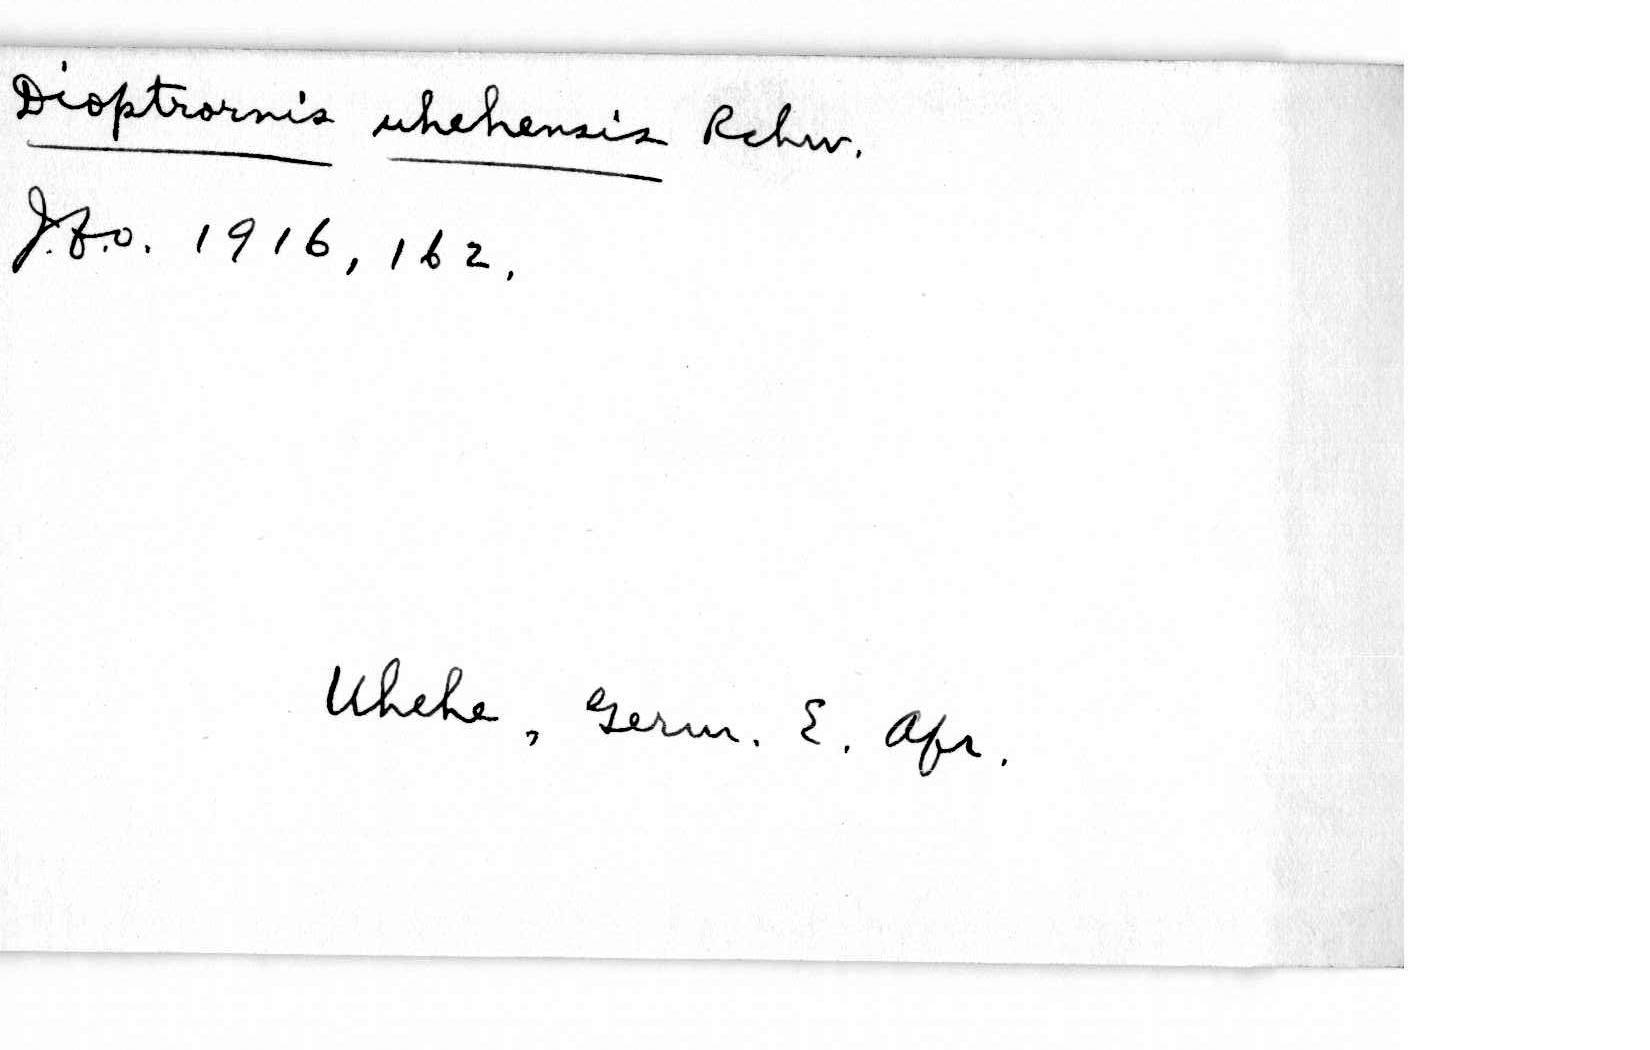 Dioptrornis uhehensis Rchw.
J.f.o. 1916, 162.
Uhehe, Germ. E. Afr.